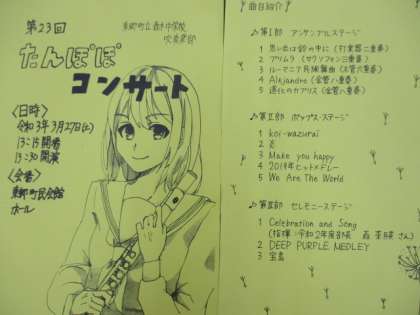 第23回
東郷町立春木中学校
吹奏楽部
たんぽぽ
コンサート
〈日時〉
令和3年3月27日(土)
13:15 開場
13:30 開演
〈会場〉
東郷町民会館
ホール
曲目紹介
♪第Ⅰ部 アンサンブルステージ
1 思い出は銀の中に (打楽器二重奏)
2 (サクソフォン三重奏)
3 ルーマニア民族舞曲 (木管六重奏)
4 Alejandro (金管八重奏)
5 道化のカプリス (金管八重奏)
♪第Ⅱ部 ポップスステージ
1 koi-wazurai
2
3 Make you happy
4 2019年ヒットメドレー
5 We Are The World
♪第Ⅲ部 セレモニーステージ
1 Celebration and Song
(指揮:令和2年度部長 さん)
2 DEEP PURPLE MEDLEY
3 宝島